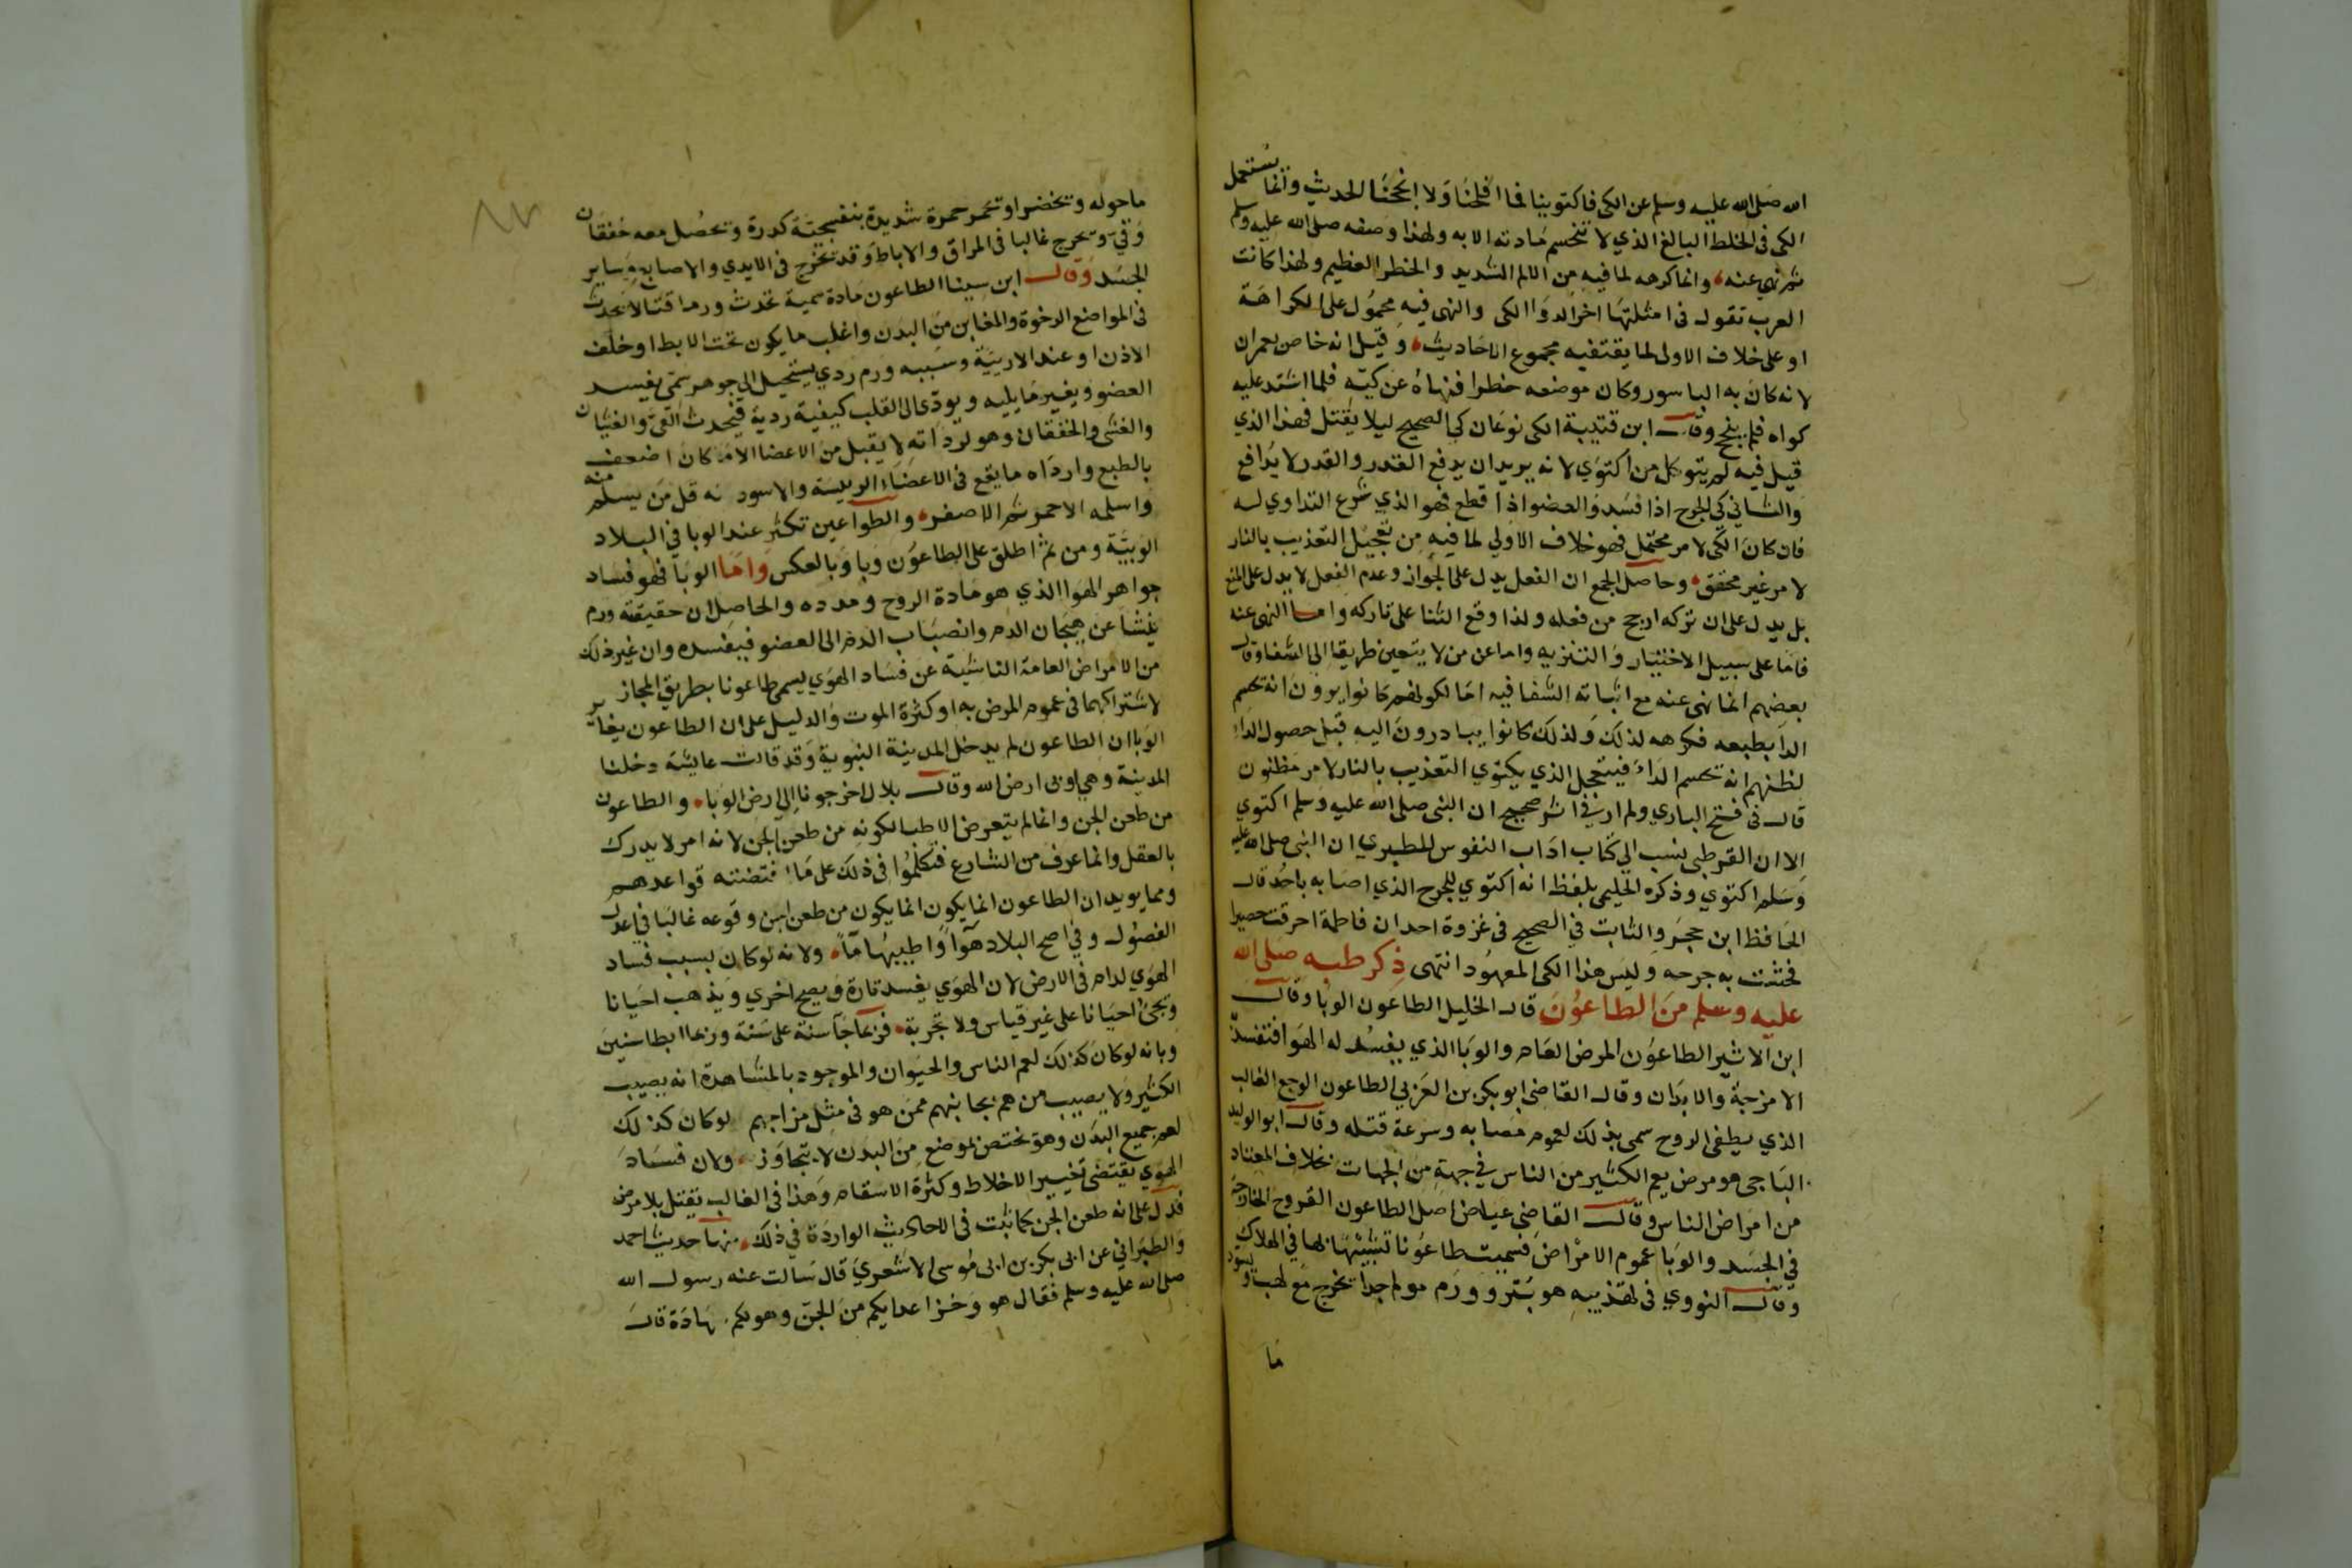 الله صلى الله عليه وسلم عن الكى فاكتوينا فما افلحنا ولا انجحنا الحديث وانما يستعمل
الكى فى الخلط البالغ الذي لا تنحسم مادته الا به ولهذا وصفه صلى الله عليه وسلم
ثم نهي عنه وانما كرهه لما فيه من الالم الشديد والخطر العظيم ولهذا كانت
العرب تقول فى امثلتها اخر الدوا الكى والنهى فيه محمول على الكراهة
او على خلاف الاولى لما يقتضيه مجموع الاحاديث وقيل انه خاص بعمران
لانه كان به الباسور وكان موضعه خطرا فنهاه عن كيه فلما اشتد عليه
كواه فلم ينجح وقال ابن قتيبة الكى نوعان كى الصحيح ليلا يقتل فهذا الذي
قيل فيه لم يتوكل من اكتوي لانه يريد ان يدفع القدر والقدر لا يدافع
والثاني كى الجرح اذا فسد والعضو اذا قطع فهو الذي شرع التداوي له
فان كان الكى لامر محتمل فهو خلاف الاولي لما فيه من تعجيل التعذيب بالنار
لامر غير محقق وحاصل الجمع ان الفعل يدل على الجواز وعدم الفعل لا يدل على المنع
بل يدل على ان تركه ارجح من فعله ولذا وقع الثنا على تاركه واما النهى عنه
فاما على سبيل الاختيار والتنزيه واما عن من لا يتعين طريقا الى الشفا وقال
بعضهم انما نهى عنه مع اثباته الشفا فيه اما لكونهم كانوا يرون انه يحسم
الدا بطبعه فكرهه لذلك ولذلك كانوا يبادرون اليه قبل حصول الداء
لظنهم انه يحسم الداء فيتعجل الذي يكتوي التعذيب بالنار لامر مظنون
قال فى فتح الباري ولم ار في اثر صحيح ان النبى صلى الله عليه وسلم اكتوي
الا ان القرطبى نسب الى كتاب اداب النفوس للطبري ان النبى صلى الله عليه
وسلم اكتوي وذكره الحليمى بلفظ انه اكتوي للجرح الذي اصابه باحد قال
الحافظ ابن حجر والثابت في الصحيح فى غزوة احد ان فاطمة احرقت حصيرا
فحشت به جرحه وليس هذا الكى المعهود انتهى ذكر طبه صلى الله
عليه وسلم من الطاعون قال الخليل الطاعون الوبا وقال
ابن الاثير الطاعون المرض العام والوبا الذي يفسد له الهوا فتفسد
الامزجة والابدان وقال القاضى ابو بكر بن العزبي الطاعون الوجع الغالب
الذي يطفى الروح سمى بذلك لعموم مصابه وسرعة قتله وقال ابو الوليد
الباجى هو مرض يعم الكثير من الناس في جهة من الجهات بخلاف المعتاد
من امراض الناس وقال القاضى عياض اصل الطاعون القروح الخارجة
في الجسد والوبا عموم الامراض فسميت طاعونا تشبيها بها في الهلاك
وقال النووي فى تهذيبه هو بثر وورم مولم جدا تخرج مع لهب ويسود
ما
ماحوله وتخضر او تحمر حمرة شديدة بنفسجية كدرة وتحصل معه خفقان
وقي وتخرج غالبا فى المراق والاباط وقد تخرج فى الايدي والاصابع وساير
الجسد وقال ابن سينا الطاعون مادة سمية تحدث ورما قتالا يحدث
فى المواضع الرخوة والمغابن من البدن واغلب ما يكون تحت الابط او خلف
الاذن او عند الارنبة وسببه ورم ردي يستحيل الى جوهر سمى يفسد
العضو ويغير ما يليه ويودى الى القلب كيفية ردية فيحدث القى والغثيان
والغشى والخفقان وهو لرداته لا يقبل من الاعضا الا ما كان اضعف
بالطبع وارداه ما يقع فى الاعضاء الرييسة والاسود منه قل من يسلم
واسلمه الاحمر ثم الاصفر والطواعين تكثر عند الوبا في البلاد
الوبيئة ومن ثم اطلق على الطاعون وبا وبالعكس واما الوبا فهو فساد
جواهر الهوا الذي هو مادة الروح ومدده والحاصل ان حقيقته ورم
ينشا عن هيجان الدم وانصباب الدم الى العضو فيفسده وان غير ذلك
من الامراض العامة الناشية عن فساد الهوي يسمى طاعونا بطريق المجاز
لاشتراكهما فى عموم المرض به او كثرة الموت والدليل على ان الطاعون يغاير
الوبا ان الطاعون لم يدخل المدينة النبوية وقد قالت عايشة دخلنا
المدينة وهي اوبى ارض الله وقال بلال اخرجونا الى ارض الوبا والطاعون
من طعن الجن وانما لم يتعرض الاطبا لكونه من طعن الجن لانه امر لا يدرك
بالعقل وانما عرف من الشارع فتكلموا فى ذلك على ما اقتضته قواعدهم
ومما يويد ان الطاعون انما يكون انما يكون من طعن الجن وقوعه غالبا في اعدل
الفصول وفي اصح البلاد هوا واطيبها ما ولانه لو كان بسبب فساد
الهوي لدام فى الارض لان الهوي يفسد تارة ويصح اخري ويذهب احيانا
وتجئ احيانا على غير قياس ولا تجربة فربما جا سنة على سنة وربما ابطا سنين
وبانه لو كان كذلك لعم الناس والحيوان والموجود بالمشاهدة انه يصيب
الكثير ولا يصيب من هم بجانبهم ممن هو فى مثل مزاجهم لو كان كذلك
لعم جميع البدن وهو يختص بموضع من البدن لا يتجاوز ولان فساد
الهوي يقتضى تغيير الاخلاط وكثرة الاسقام وهذا فى الغالب يقتل بلا مرض
فدل على انه طعن الجن كما ثبت فى الاحاديث الواردة في ذلك منها حديث احمد
والطبراني عن ابى بكر بن ابى موسى الاشعري قال سالت عنه رسول الله
صلى الله عليه وسلم فقال هو وخز اعدايكم من الجن وهو لكم شهادة قال